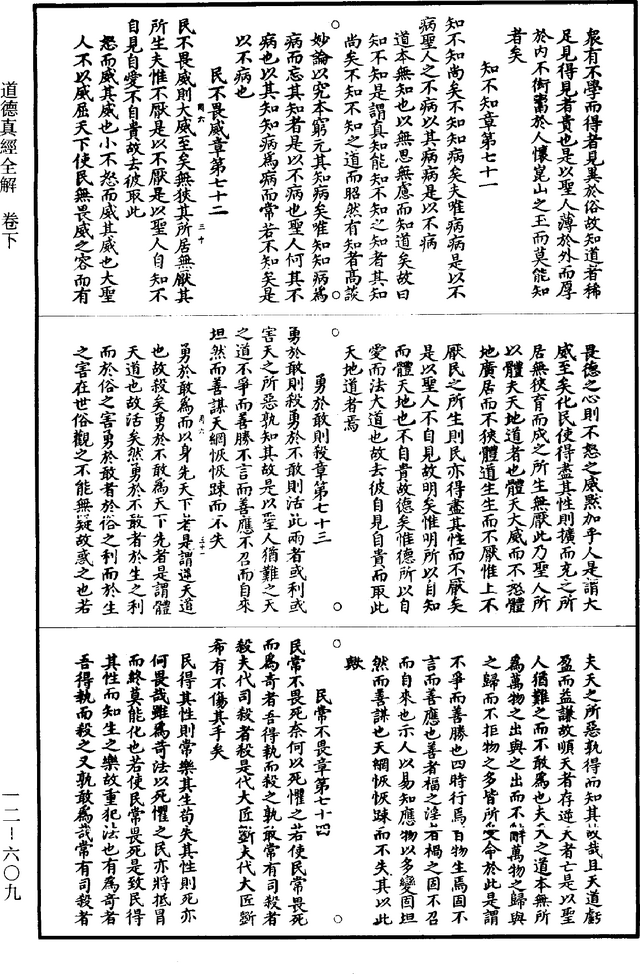 衆有不學而得者見異於俗故知道者稀
足見得見者貴也是以聖人薄於外而厚
於內不衒鬻於人懷崑山之玉而莫能知
者矣
知不知章第七十一
知不知尚矣不知知病矣夫唯病病是以不
病聖人之不病以其病病是以不病
道本無知也以無思無慮而知道矣故曰
知不知是謂真知能知不知之知者其知
尚矣不知不知之道而昭然有知者高談
妙論以究本窮元其知病矣唯知知病爲
病而忘其知者是以不病也聖人何其不
病也以其知知病爲病而常若不知矣是
以不病也
民不畏威章第七十二
民不畏威則大威至矣無狹其所居無厭其
所生夫惟不厭是以不厭是以聖人自知不
自見自愛不自貴故去彼取此
怒而威其威也小不怒而威其威也大聖
人不以威屈天下使民無畏威之容而有
畏德之心則不怒之威默加乎人是謂大
威至矣化民使得盡其性則擴而充之所
居無狹育而成之所生無厭此乃聖人所
以體夫天地道者也體天大威而不怒體
地廣居而不狹體道生生而不厭惟上不
厭民之所生則民亦得盡其性而不厭矣
是以聖人不自見故明矣惟明所以自知
而體天地也不自貴故德矣惟德所以自
愛而法大道也故去彼自見自貴而取此
天地道者焉
勇於敢則殺章第七十三
勇於敢則殺勇於不敢則活此兩者或利或
害天之所惡孰知其故是以聖人猶難之天
之道不爭而善勝不言而善應不召而自來
坦然而善謀天網恢恢踈而不失
勇於敢爲而以身先天下若是謂逆天道
也故殺矣勇於不敢爲天下先者是謂體
天道也故活矣然勇於不敢者於生之利
而於俗之害勇於敢者於俗之利而於生
之害在世俗觀之不能無疑故惑之也若
夫天之所惡孰得而知其故哉且天道虧
盈而益謙故順天者存逆天者亡是以聖
人猶難之而不敢爲也夫天之道本無所
爲萬物之出與之出而不辭萬物之歸與
之歸而不拒物之多皆所受命於此是謂
不爭而善勝也四時行焉百物生焉固不
言而善應也善者福之淫者禍之固不召
而自來也示人以易知應物以多變固坦
然而善謀也天網恢恢踈而不失其以此
歟
民常不畏章第七十四
民常不畏死奈何以死懼之若使民常畏死
而爲奇者吾得執而殺之孰敢常有司殺者
殺夫代司殺者殺是代大匠斲夫代大匠斲
希有不傷其手矣
民得其性則常樂其生苟失其性則死亦
何畏哉雖爲奇法以死懼之民亦將抵冒
而終莫能化也若使民常畏死是致民得
其性而知生之樂故重犯法也有爲奇者
吾得執而殺之又孰敢爲哉常有司殺者
道德真經全解 卷下
一二－六〇九